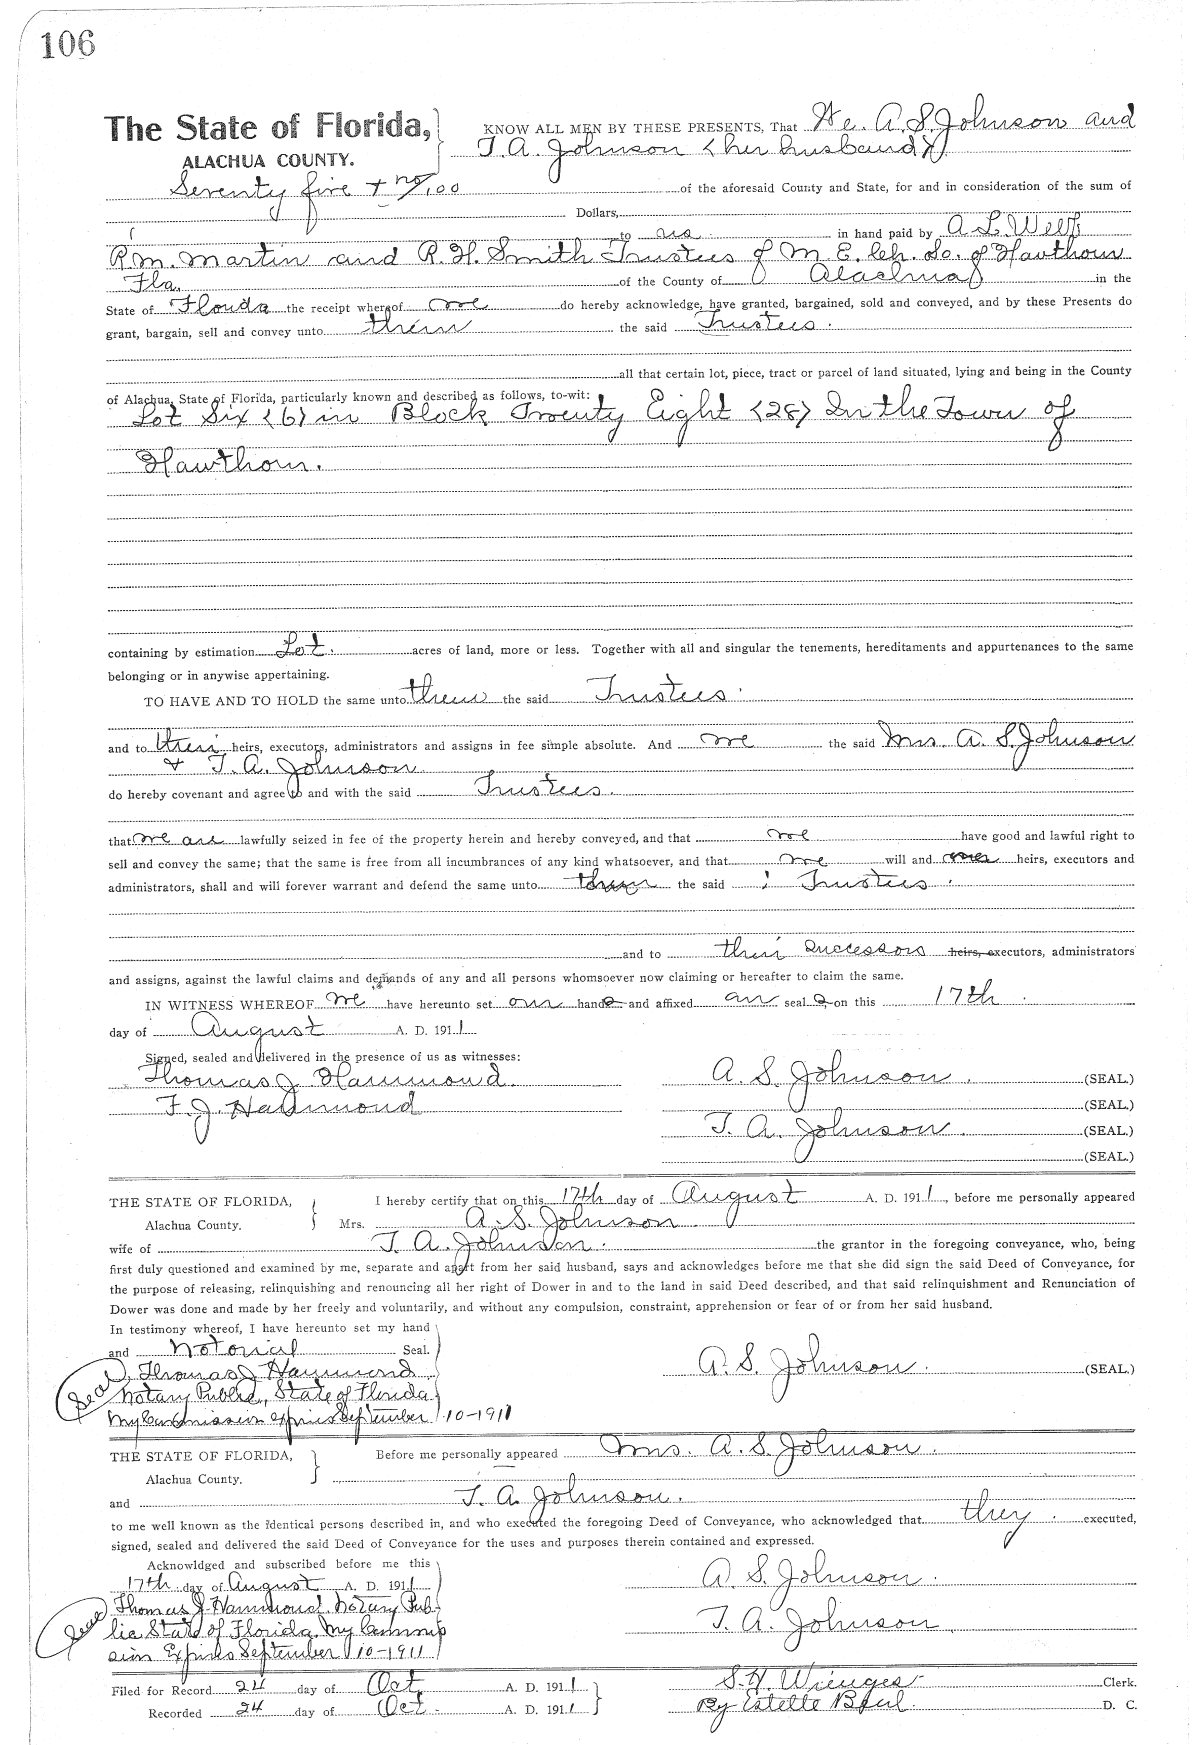 106
The State of Florida, KNOW ALL MEN BY THESE PRESENTS, That We. A. S. Johnson and
ALACHUA COUNTY. T. A. Johnson (her husband)
Seventy five + no/100 of the aforesaid County and State, for and in consideration of the sum of
Dollars,
to us in hand paid by A. L. Webb
R. M. Martin and R. H. Smith Trustees of M. E. Ch. So. of Hawthorn
Fla. of the County of Alachua in the
State of Florida the receipt whereof we do hereby acknowledge, have granted, bargained, sold and conveyed, and by these Presents do
grant, bargain, sell and convey unto them the said Trustees.
all that certain lot, piece, tract or parcel of land situated, lying and being in the County
of Alachua, State of Florida, particularly known and described as follows, to-wit:
Lot Six (6) in Block Twenty Eight (28) In the Town of
Hawthorn.
containing by estimation Lot. acres of land, more or less. Together with all and singular the tenements, hereditaments and appurtenances to the same
belonging or in anywise appertaining.
TO HAVE AND TO HOLD the same unto them the said Trustees.
and to their heirs, executors, administrators and assigns in fee simple absolute. And we the said Mrs. A. S. Johnson
+ T. A. Johnson
do hereby covenant and agree to and with the said Trustees.
that we are lawfully seized in fee of the property herein and hereby conveyed, and that we have good and lawful right to
sell and convey the same; that the same is free from all incumbrances of any kind whatsoever, and that we will and heirs, executors and
administrators, shall and will forever warrant and defend the same unto them the said Trustees.
and to their successors heirs, executors, administrators
and assigns, against the lawful claims and demands of any and all persons whomsoever now claiming or hereafter to claim the same.
IN WITNESS WHEREOF we have hereunto set our hands and affixed our seals on this 17th
day of August A. D. 1911
Signed, sealed and delivered in the presence of us as witnesses:
Thomas J. Hammond. A. S. Johnson. (SEAL.)
F. J. Hammond (SEAL.)
T. A. Johnson. (SEAL.)
(SEAL.)
THE STATE OF FLORIDA, I hereby certify that on this 17th day of August A. D. 1911, before me personally appeared
Alachua County. Mrs. A. S. Johnson
wife of T. A. Johnson. the grantor in the foregoing conveyance, who, being
first duly questioned and examined by me, separate and apart from her said husband, says and acknowledges before me that she did sign the said Deed of Conveyance, for
the purpose of releasing, relinquishing and renouncing all her right of Dower in and to the land in said Deed described, and that said relinquishment and Renunciation of
Dower was done and made by her freely and voluntarily, and without any compulsion, constraint, apprehension or fear of or from her said husband.
In testimony whereof, I have hereunto set my hand
and Notorial Seal.
Seal, Thomas J Hammond A. S. Johnson. (SEAL.)
Notary Public, State of Florida
My Commission expires September 10-1911
THE STATE OF FLORIDA, Before me personally appeared Mrs. A. S. Johnson.
Alachua County.
and T. A. Johnson.
to me well known as the identical persons described in, and who executed the foregoing Deed of Conveyance, who acknowledged that they executed,
signed, sealed and delivered the said Deed of Conveyance for the uses and purposes therein contained and expressed.
Acknowldged and subscribed before me this
17th day of August A. D. 1911 A. S. Johnson.
Seal Thomas J. Hammond. Notary Pub-
lic State of Florida. My Commis T. A. Johnson
sion Expires September 10-1911
Filed for Record 24 day of Oct A. D. 1911 S. H. Wienges Clerk.
Recorded 24 day of Oct. A. D. 1911 By Estelle D. C.